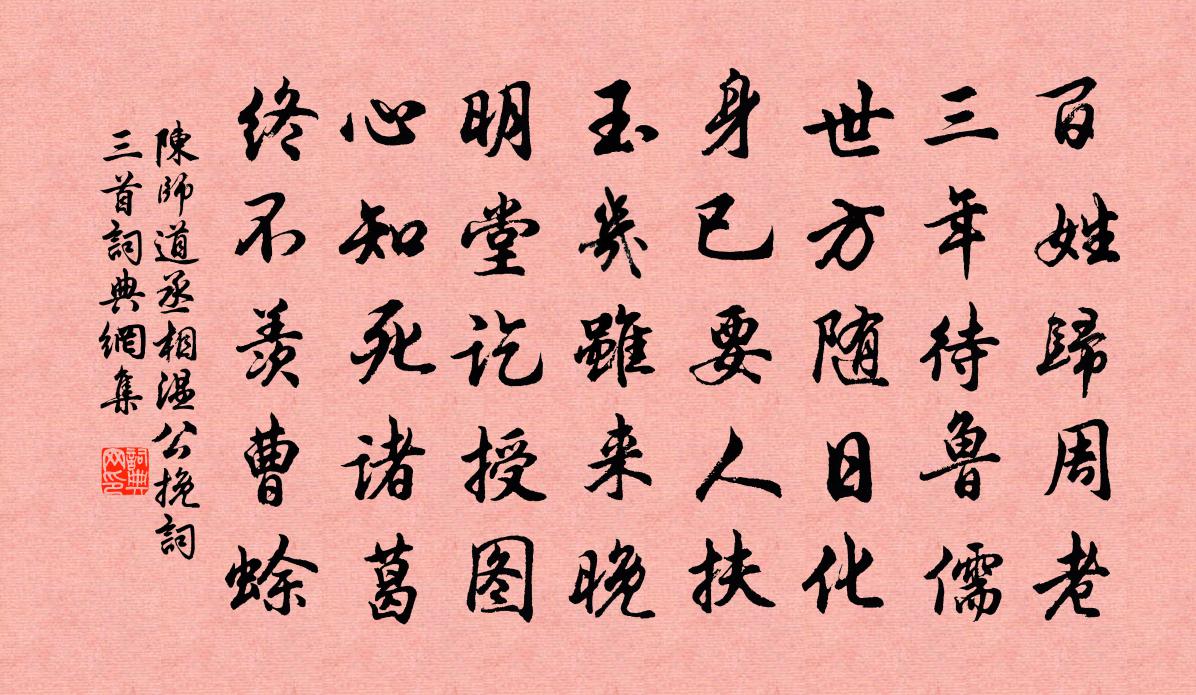 百姓歸周老
三年待魯儒
世方随日化
身已要人扶
玉幾雖来晚
明堂訖授图
心知死诸葛
終不羨曹蜍
陳師道丞相温公挽詞
三首詞典網集
詞典网印